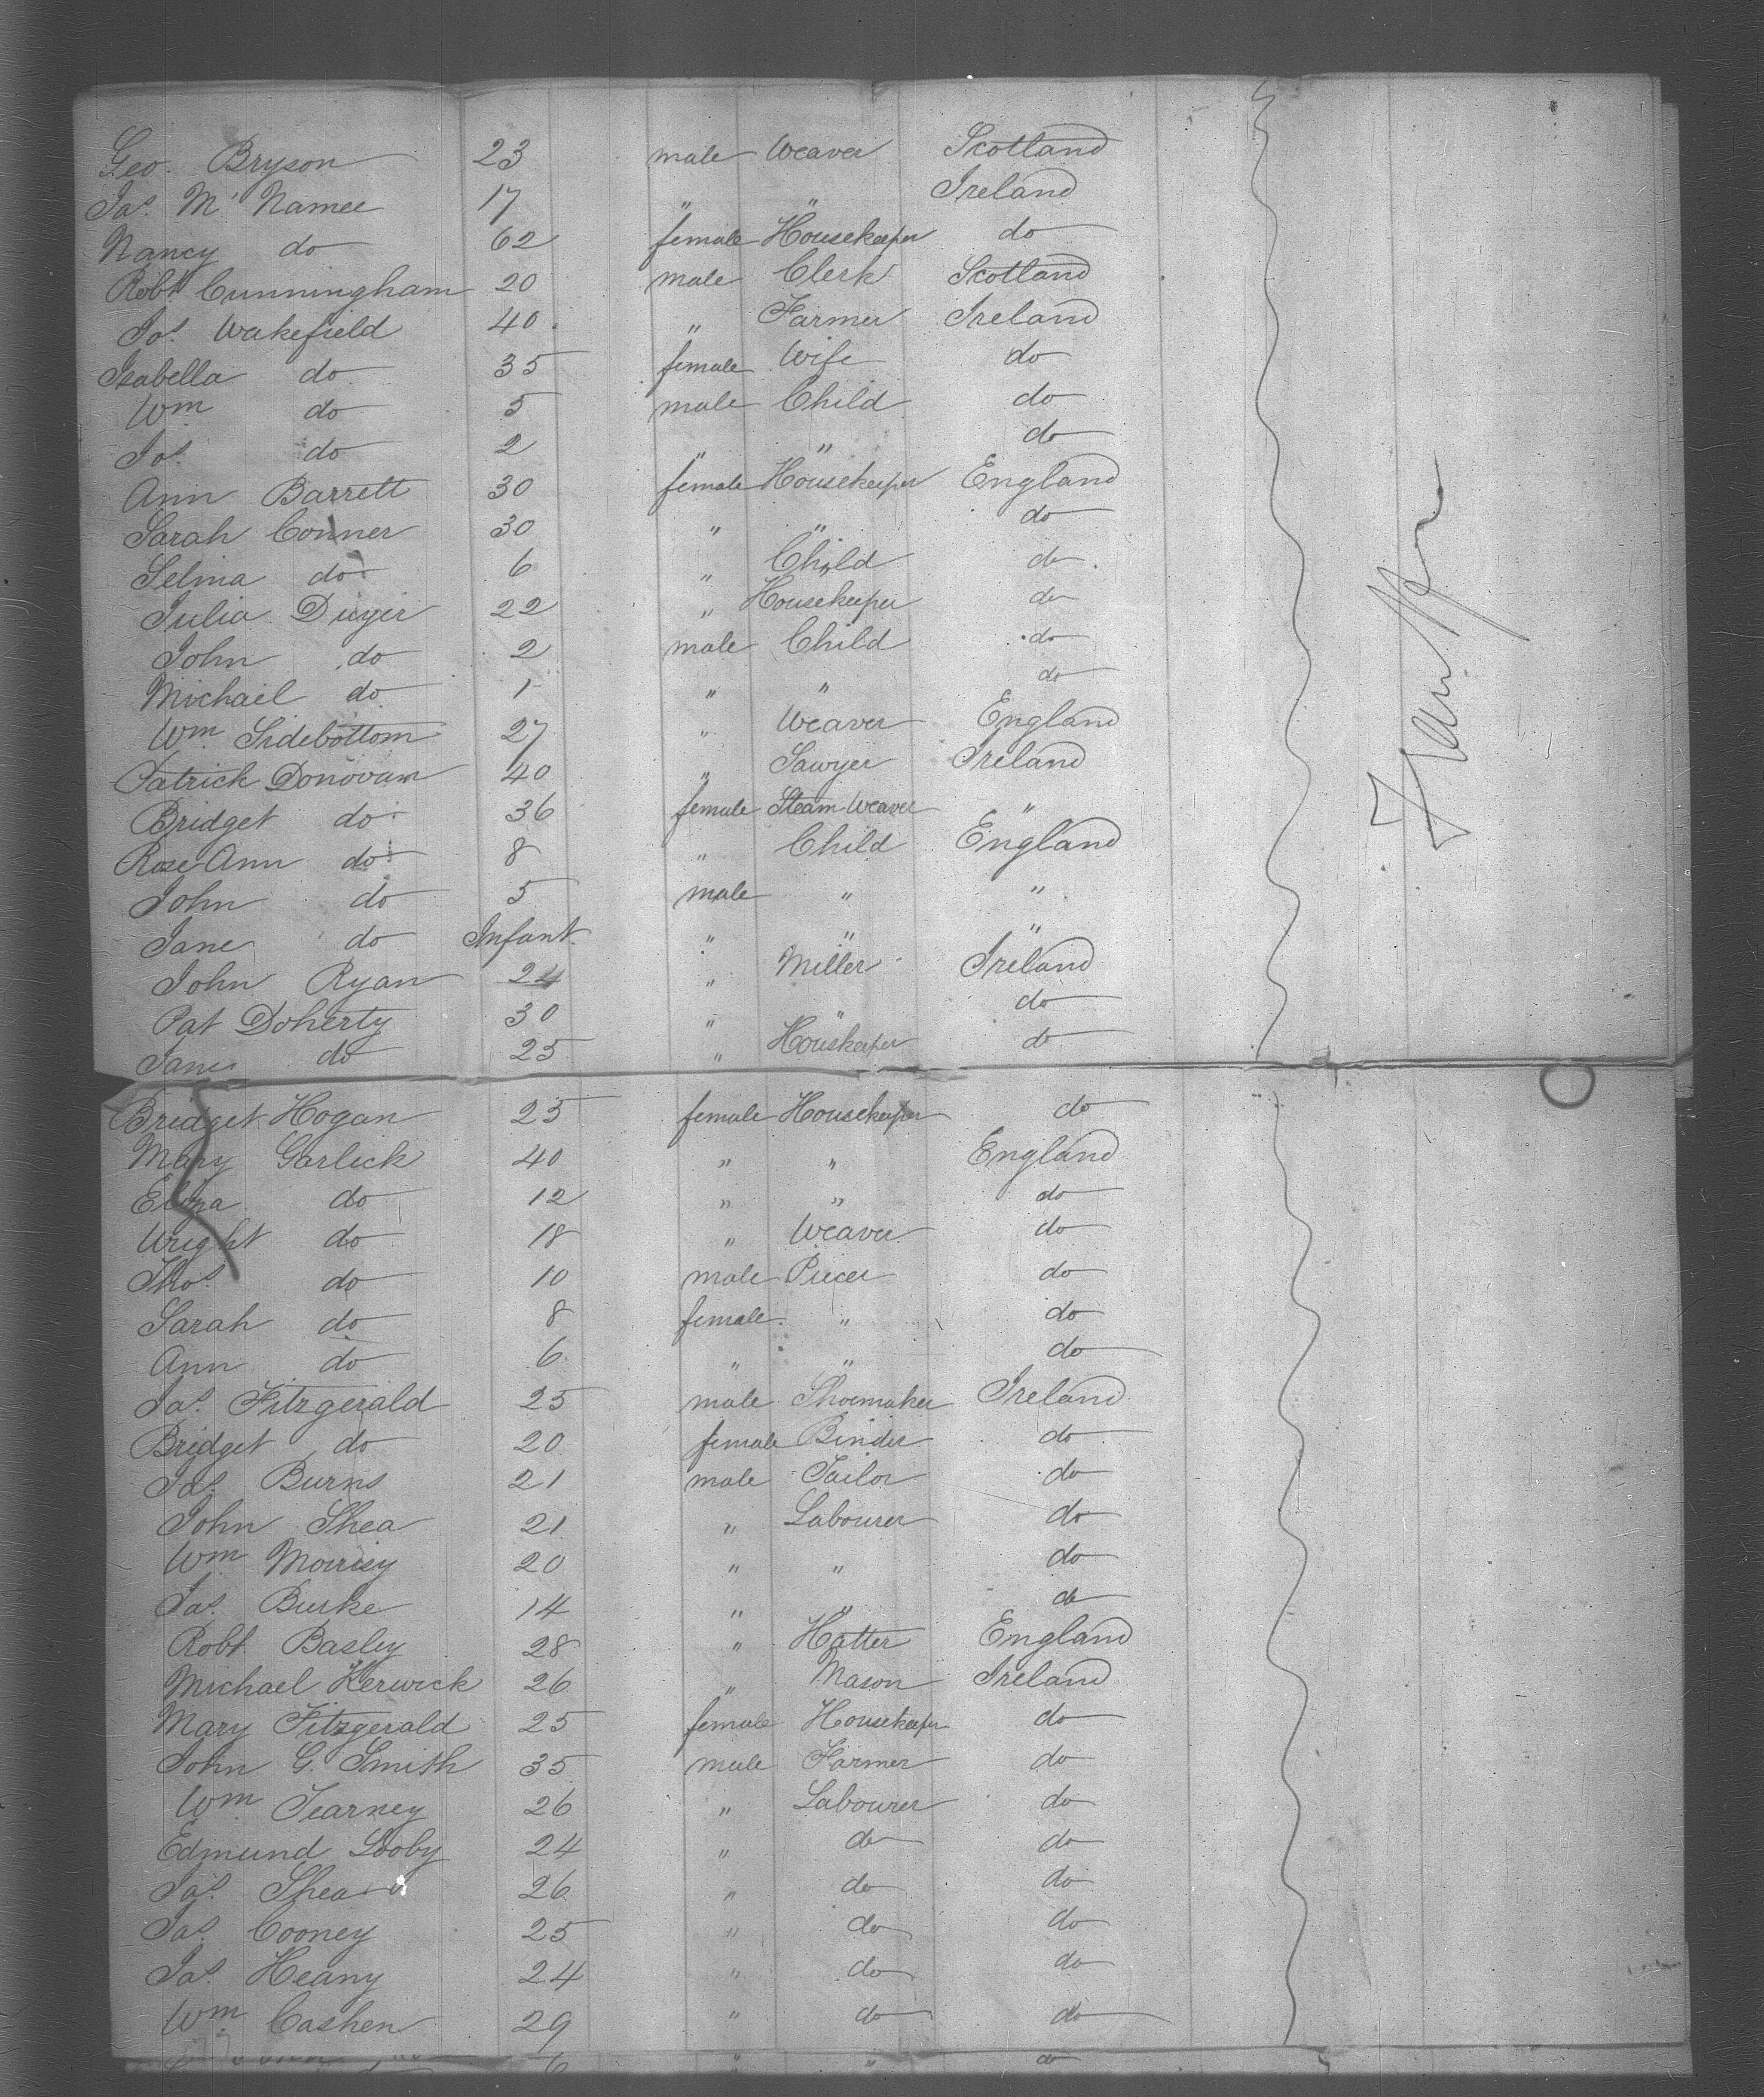 Geo. Bryson 23 male Weaver Scotland
Jas. McNamee 17 " " Ireland
Nancy do 62 female Housekeeper do
Robt. Cunningham 20 male Clerk Scotland
Jos. Wakefield 40 " Farmer Ireland
Isabella do 35 female Wife do
Wm do 5 male Child do
Jos. do 2 " " do
Ann Barrett 30 female Housekeeper England
Sarah Conner 30 " " do
Selina do 6 " Child do
Julia Dwyer 22 " Housekeeper do
John do 2 male Child do
Michael do 1 " " do
Wm. Sidebottom 27 " Weaver England
Patrick Donovan 40 " Sawyer Ireland
Bridget do 36 female Steam Weaver "
Rose Ann do 8 " Child England
John do 5 male " "
Jane do Infant " " "
John Ryan 24 " Miller Ireland
Pat Doherty 30 " " do
Jane do 25 " Houskeeper do
Bridget Hogan 25 female Housekeeper do
Mary Garlick 40 " " England
Eliza do 12 " " do
Wright do 18 " Weaver do
Thos. do 10 male Piecer do
Sarah do 8 female " do
Ann do 6 " " do
Jas. Fitzgerald 25 male Shoemaker Ireland
Bridget do 20 female Binder do
Jas. Burns 21 male Tailor do
John Shea 21 " Labourer do
Wm Morrisy 20 " " do
Jas. Burke 14 " " do
Robt. Basley 28 " Hatter England
Michael Kerwick 26 " Mason Ireland
Mary Fitzgerald 25 female Housekeeper do
John G. Smith 35 male Farmer do
Wm Tearney 26 " Labourer do
Edmund Looby 24 " do do
Jas. Shea 26 " do do
Jas. Cooney 25 " do do
Jas. Heany 24 " do do
Wm. Cashen 29 " do do